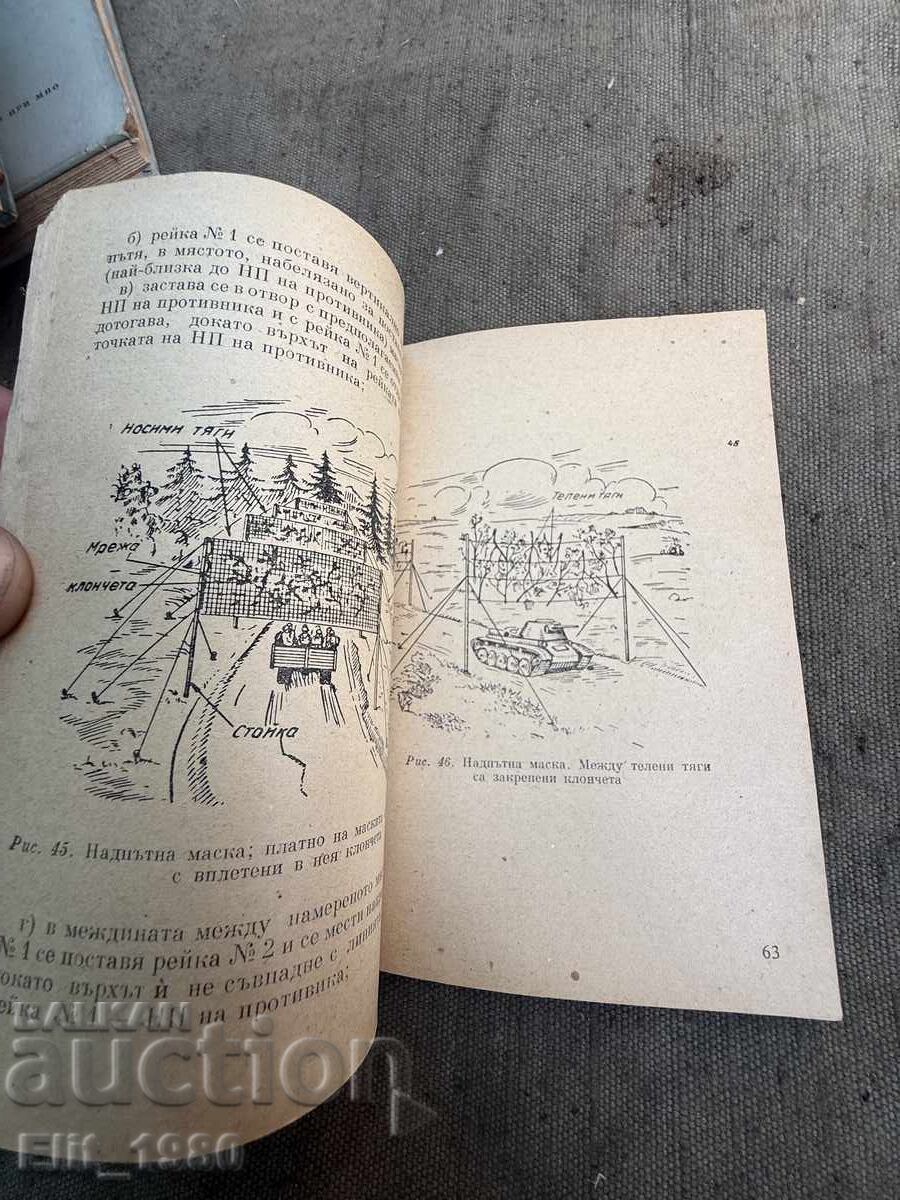 ПРИ МПО
б) рейка № 1 се поставя
пътя, в мястото, набелязано за
(най-близка до НП на противника)
в) застава се в отвор с
НП на противника и с рейка № 1 се
дотогава, докато върхът на рейката
точката на НП на противника;
НОСИМИ ТЯГИ
Мрежа
клончета
Стойка
Рис. 45. Надпътна маска; платно на маската
с вплетени в нея клончета
г) в междината между намереното
№ 1 се поставя рейка № 2 и се мести
докато върхът ѝ не съвпадне с
рейка № 1 НП на противника;
45
Телени тяги
Рис. 46. Надпътна маска. Между телени тяги
са закрепени клончета
63
БАЛКАН
auction
Elit_1980